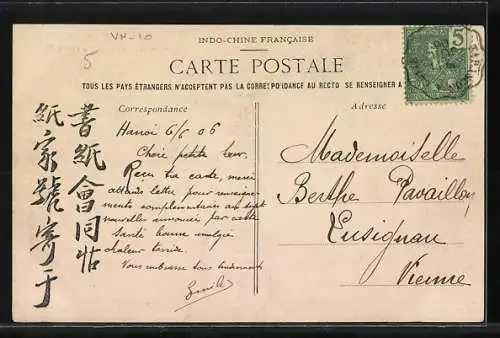 VN-10
5
INDO-CHINE FRANÇAISE
CARTE POSTALE
TOUS LES PAYS ÉTRANGERS N'ACCEPTENT PAS LA CORRESPONDANCE AU RECTO SE RENSEIGNER A
5
Correspondance
Adresse
Hanoi 6/5 06
Chère petite
Reçu ta carte, merci
attends lettre pour renseigne-
ments complémentaires au sujet
nouvelles annoncées par cette
Santé bonne malgré
chaleur torride.
Vous embrasse tous tendrement
Emile
Mademoiselle
Berthe Pavailloy
Lusignan
Vienne
書紙會同帖
紙家號寄于